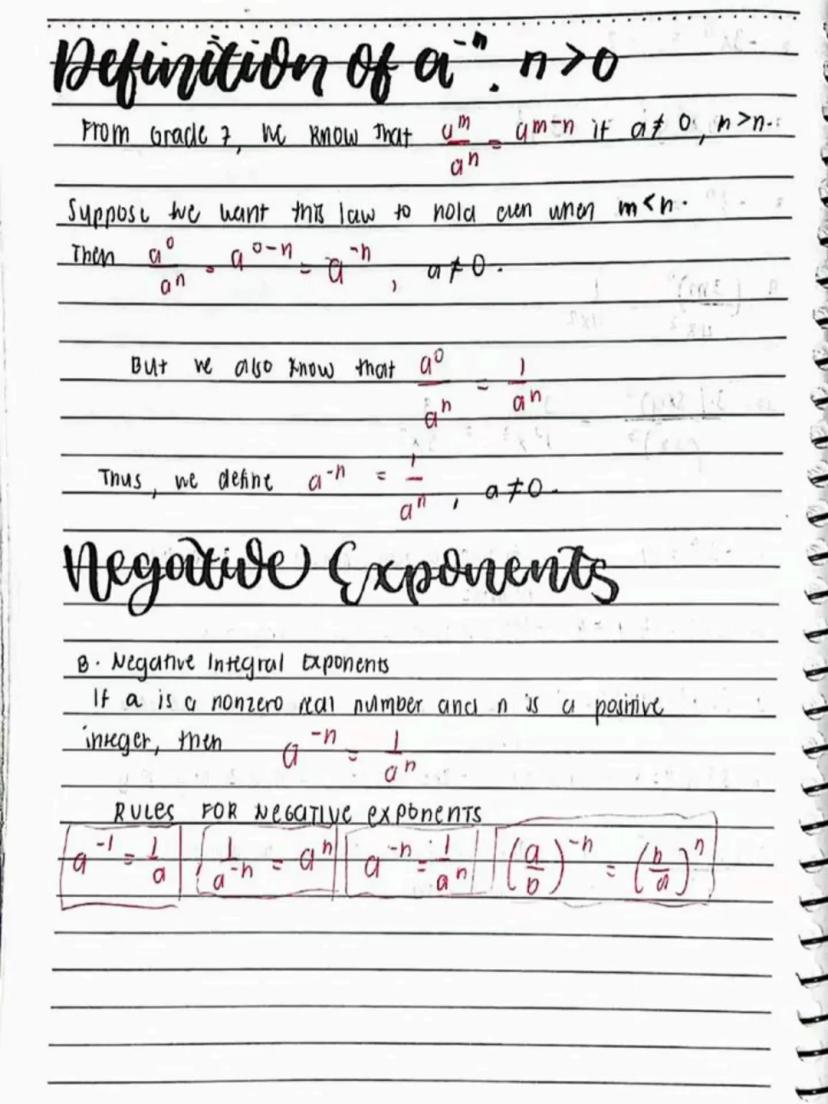 Definition of a⁻ⁿ, n > 0
From Grade 7, we know that aᵐ/aⁿ = aᵐ⁻ⁿ if a ≠ 0, n > n.
Suppose we want this law to hold even when m < n.
Then a⁰/aⁿ = a⁰⁻ⁿ = a⁻ⁿ, a ≠ 0.
But we also know that a⁰/aⁿ = 1/aⁿ
Thus, we define a⁻ⁿ = 1/aⁿ, a ≠ 0.
Negative Exponents
B. Negative Integral Exponents
If a is a nonzero real number and n is a positive
integer, then a⁻ⁿ = 1/aⁿ
RULES FOR NEGATIVE EXPONENTS
a⁻¹ = 1/a 1/a⁻ⁿ = aⁿ a⁻ⁿ = 1/aⁿ (a/b)⁻ⁿ = (b/a)ⁿ